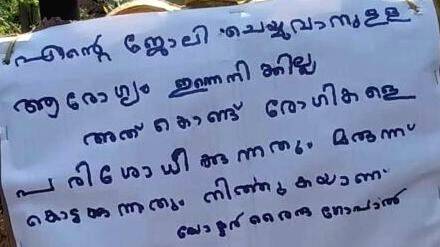 എന്റെ ജോലി ചെയ്യുവാനുള്ള
ആരോഗ്യം ഇന്നെനിക്കില്ല
അത് കൊണ്ട് രോഗികളെ
പരിശോധിക്കുന്നതും മരുന്ന്
കൊടുക്കുന്നതും നിർത്തുകയാണ്
ഡോക്ടർ രൈരു ഗോപാൽ